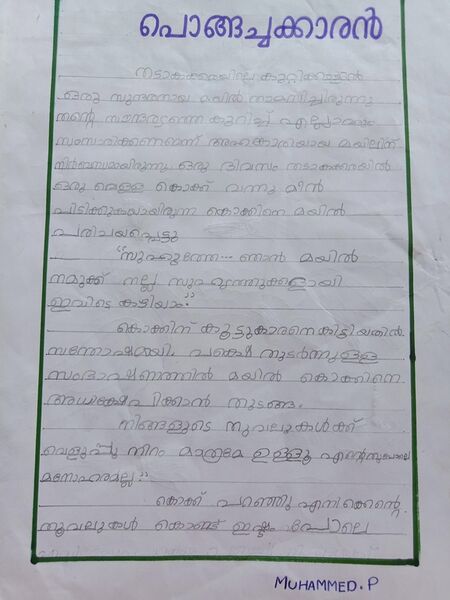 പൊങ്ങച്ചക്കാരൻ
തടാകക്കരയിലെ കുറ്റിക്കാട്ടിൽ
ഒരു സുന്ദരനായ മയിൽ താമസിച്ചിരുന്നു
തന്റെ സൗന്ദര്യത്തെ കുറിച്ച് എല്ലാവരും
സംസാരിക്കണമെന്ന് അഹങ്കാരിയായ മയിലിന്
നിർബന്ധമായിരുന്നു ഒരു ദിവസം തടാകക്കരയിൽ
ഒരു വെള്ള കൊക്ക് വന്നു മീൻ
പിടിക്കുകയായിരുന്ന കൊക്കിനെ മയിൽ
പരിചയപ്പെട്ടു
"സുഹൃത്തേ... ഞാൻ മയിൽ
നമുക്ക് നല്ല സുഹൃത്തുക്കളായി
ഇവിടെ കഴിയാം"
കൊക്കിന് കൂട്ടുകാരനെ കിട്ടിയതിൽ
സന്തോഷമായി. പക്ഷെ തുടർന്നുള്ള
സംഭാഷണത്തിൽ മയിൽ കൊക്കിനെ
അധിക്ഷേപിക്കാൻ തുടങ്ങി.
നിങ്ങളുടെ തൂവലുകൾക്ക്
വെളുപ്പു നിറം മാത്രമേ ഉള്ളൂ എന്റെതുപോലെ
മനോഹരമല്ല"
കൊക്ക് പറഞ്ഞു എനിക്കെന്റെ
തൂവലുകൾ കൊണ്ട് ഇഷ്ടം പോലെ
MUHAMMED.P